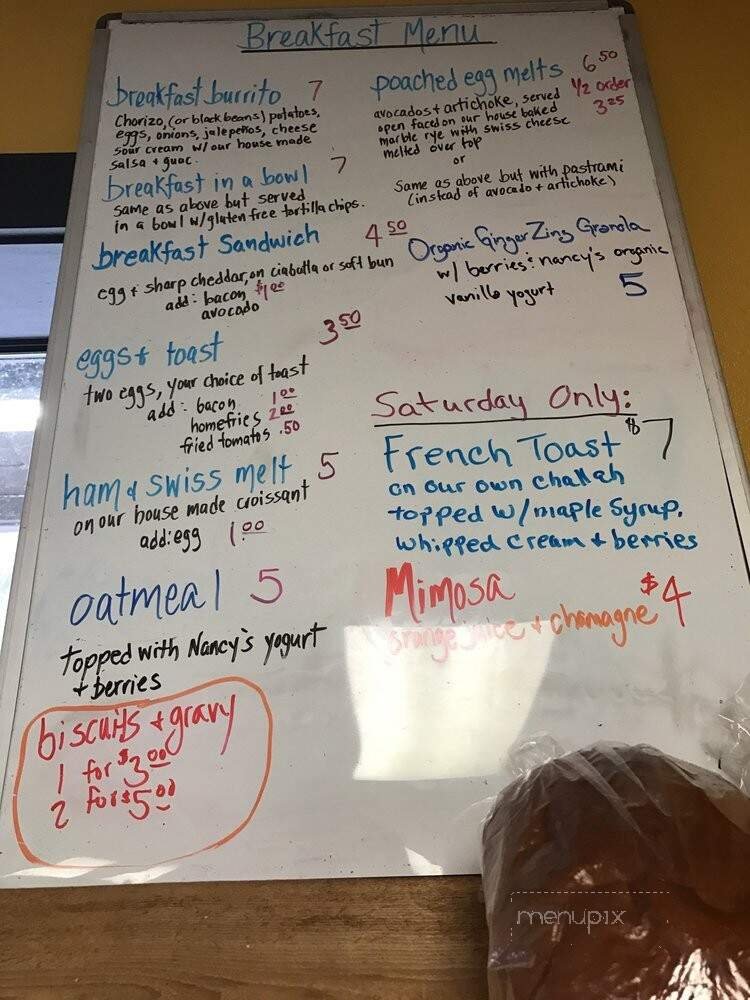 Breakfast Menu
breakfast burrito 7
Chorizo, (or black beans) potatoes,
eggs, onions, jalepeños, cheese
sour cream w/our house made
salsa + guac.
breakfast in a bowl 7
same as above but served
in a bowl w/gluten free tortilla chips.
breakfast Sandwich 4 50
egg + sharp cheddar, on ciabatta or soft bun
add: bacon $1.00
avocado
eggs + toast 3 50
two eggs, your choice of toast
add: bacon 1.00
homefries 2.00
fried tomatos .50
ham & swiss melt 5
on our house made croissant
add: egg 1.00
oatmeal 5
topped with Nancy's yogurt
+ berries
biscuits + gravy
1 for $3.00
2 for $5.00
poached egg melts 6 50
1/2 order
3 25
avocados + artichoke, served
open faced on our house baked
marble rye with swiss cheese
melted over top
or
Same as above but with pastrami
(instead of avocado + artichoke)
Organic Ginger Zing Granola
w/ berries + nancy's organic
vanilla yogurt 5
Saturday Only:
French Toast $7
on our own challah
topped w/maple Syrup,
whipped cream + berries
Mimosa $4
orange juice + chamagne
menupix